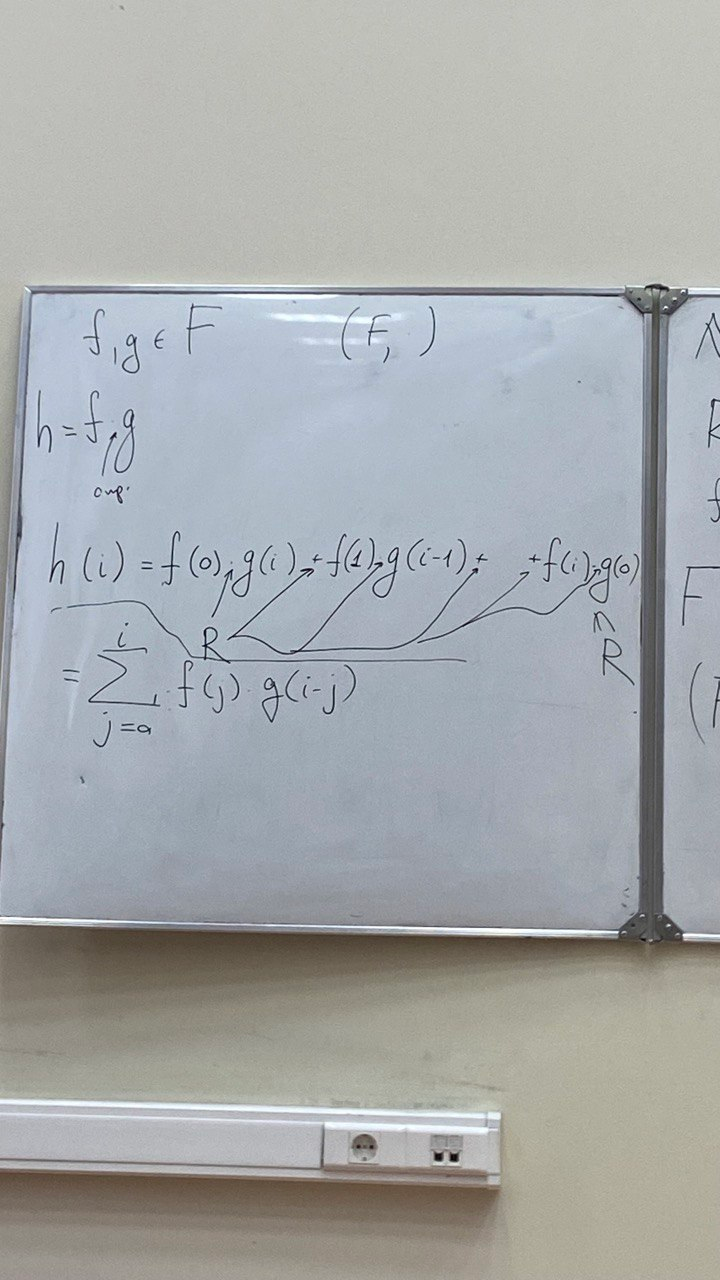 f, g ∈ F (F, )
h = f · g
опр.
h(i) = f(0) · g(i) + f(1) · g(i-1) + + f(i) · g(0)
R
R
= ∑_{j=0}^{i} f(j) · g(i-j)